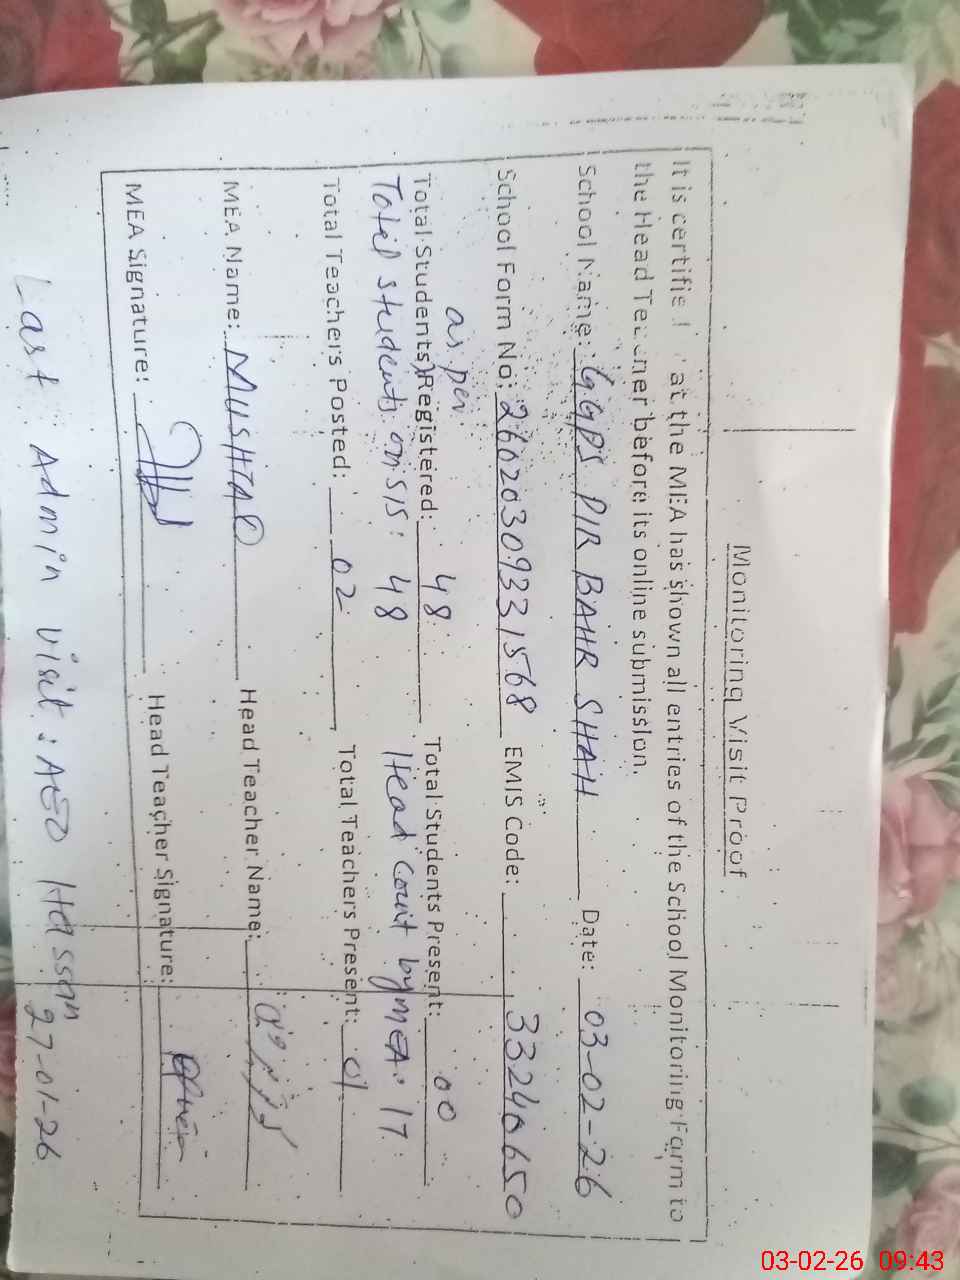 Monitoring Visit Proof
It is certifie at the MEA has shown all entries of the School Monitoring Farm to
the Head Teacher before its online submission.
School Name: GGPS PIR BAHR SHAH Date: 03-02-26
School Form No: 26020309331568 EMIS Code: 33240650
as per
Total Students Registered: 48 Total Students Present: 00
Total students on SIS: 48 Head Count by MEA: 17
Total Teachers Posted: 02 Total Teachers Present: 01
MEA Name: MUSHTAQ Head Teacher Name:
MEA Signature: Head Teacher Signature:
Last Admin visit: AEO Hassan
27-01-26
03-02-26 09:43